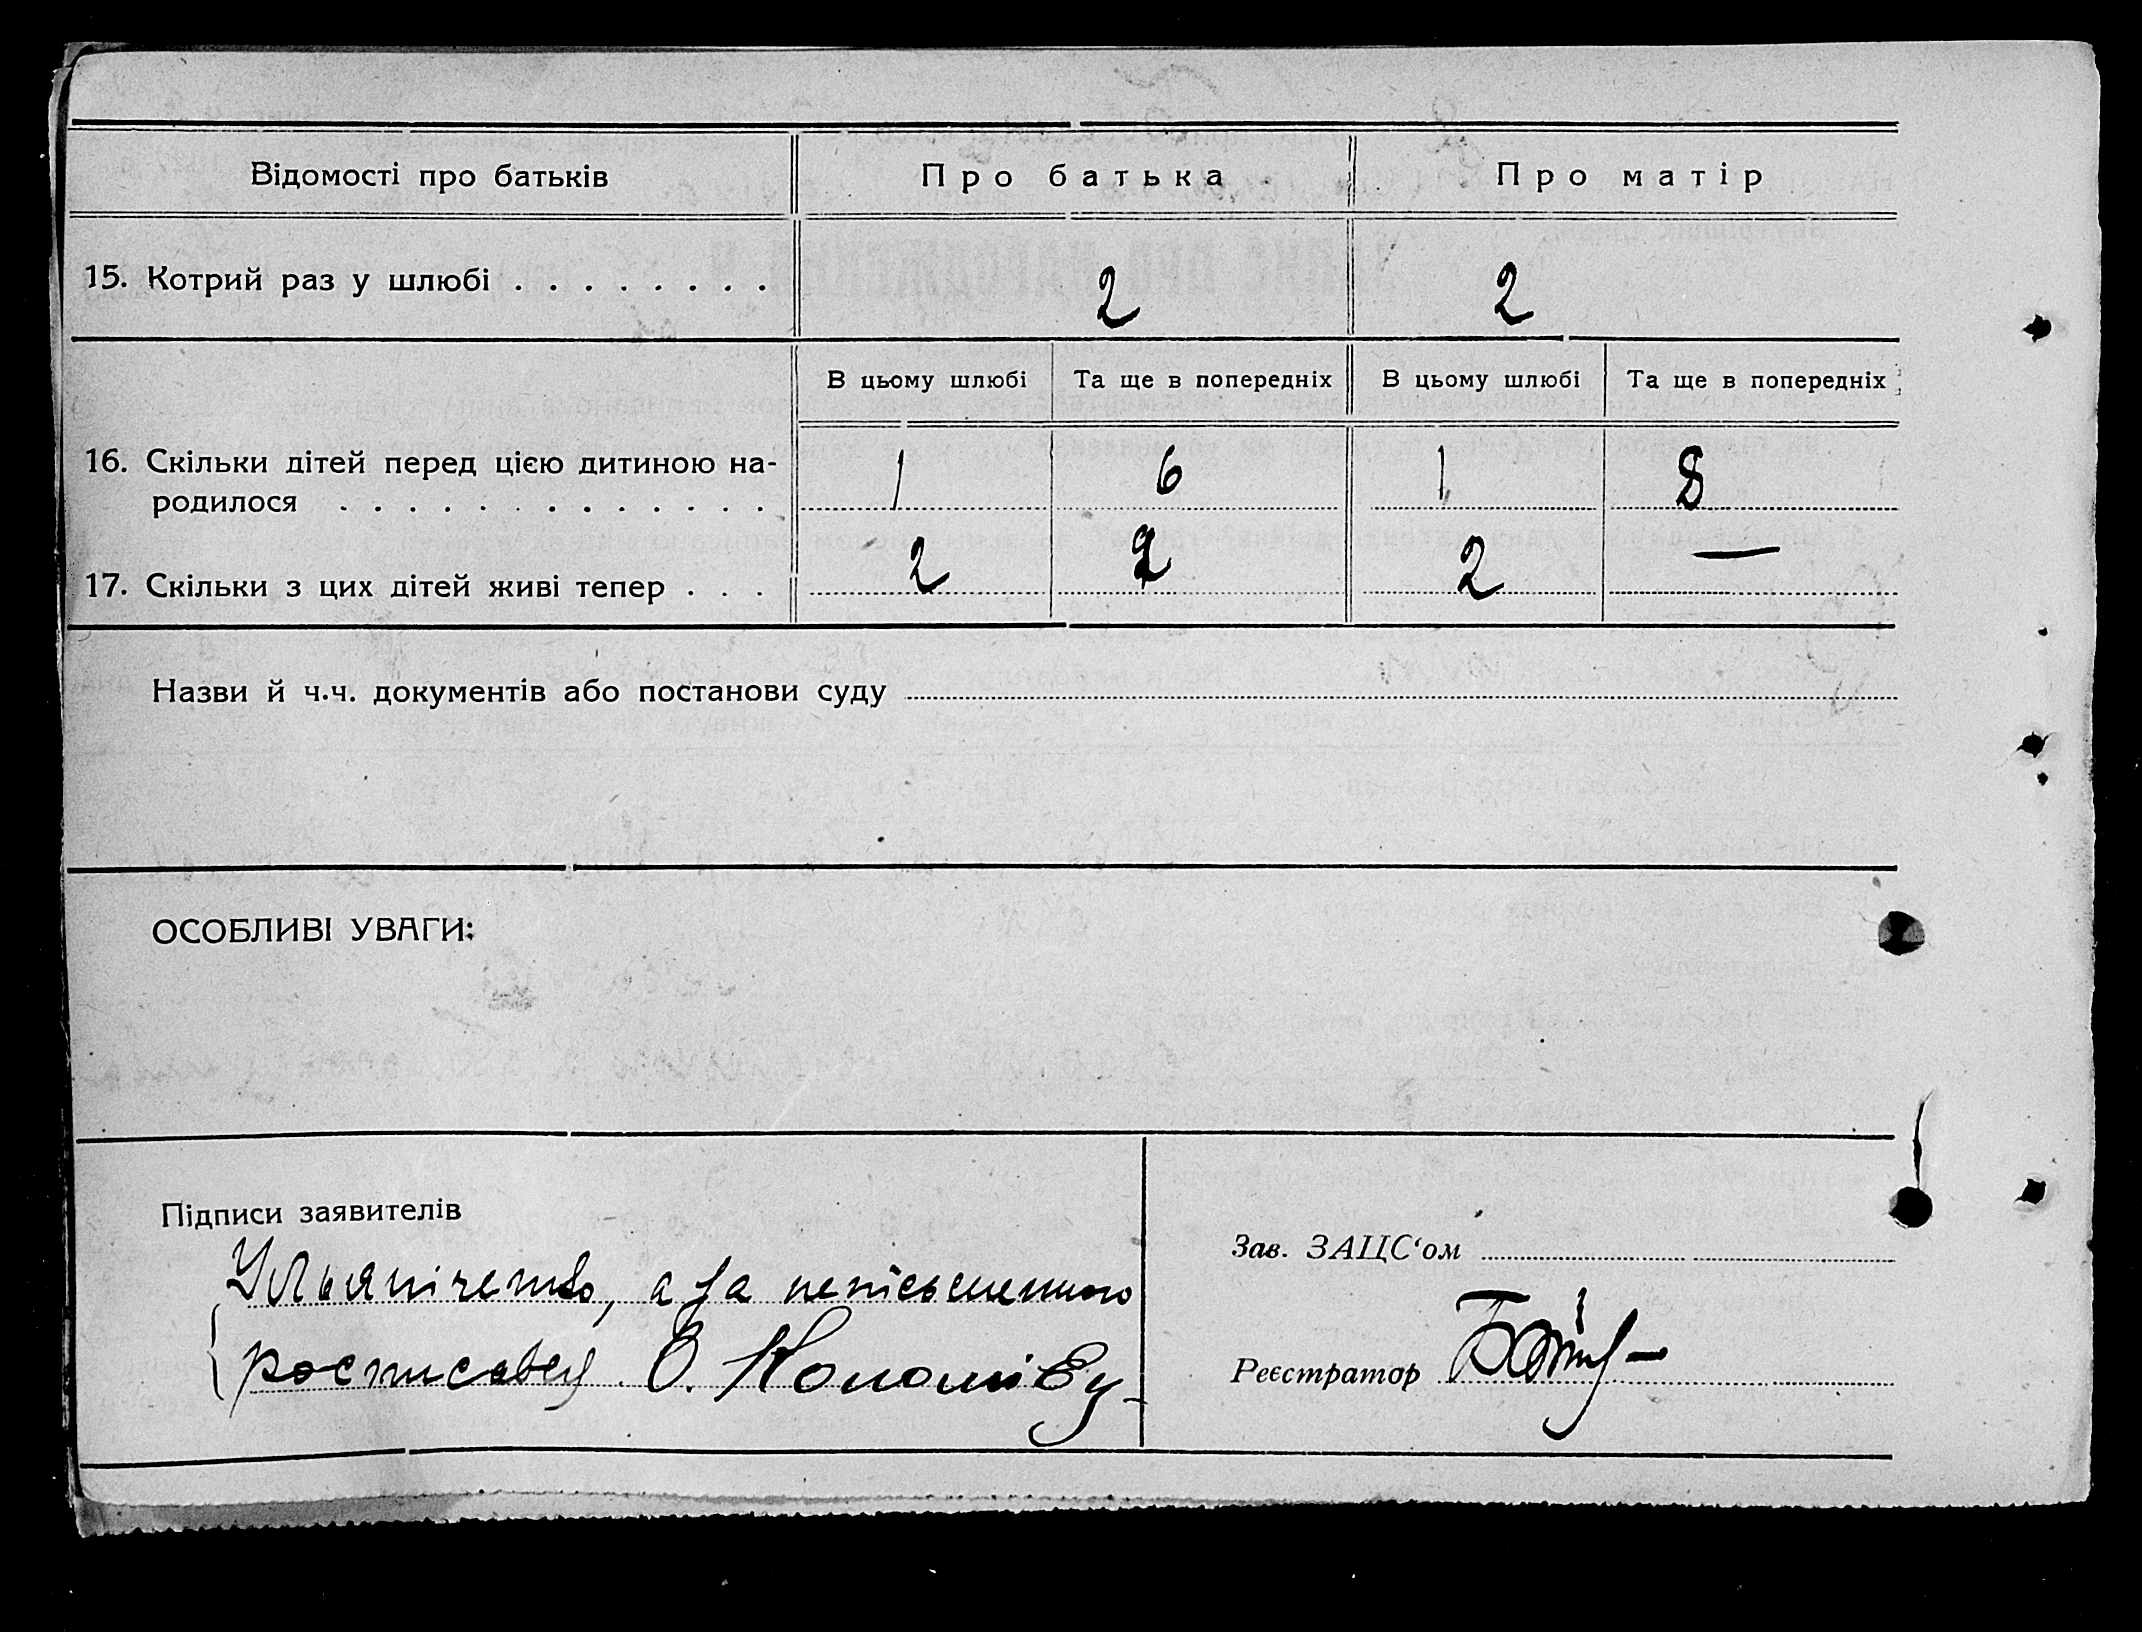 Відомості про батьків Про батька Про матір
15. Котрий раз у шлюбі . . . . . . . . 2 2
В цьому шлюбі Та ще в попередніх В цьому шлюбі Та ще в попередніх
16. Скільки дітей перед цією дитиною на- 1 6 1 8
родилося . . . . . . . . . . . . .
17. Скільки з цих дітей живі тепер . . . 2 2 2 —
Назви й ч.ч. документів або постанови суду
ОСОБЛИВІ УВАГИ:
Підписи заявителів
а за неписьменного
О.
Зав. ЗАЦС‘ом
Реєстратор